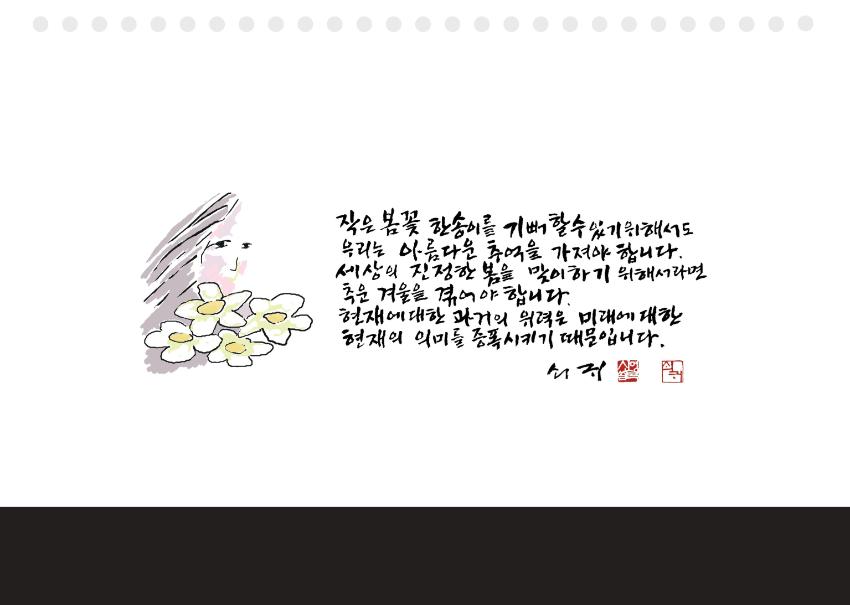 작은 봄꽃 한송이를 기뻐할 수 있기 위해서도
우리는 아름다운 추억을 가져야 합니다.
세상의 진정한 봄을 맞이하기 위해서라면
추운 겨울을 겪어야 합니다.
현재에 대한 과거의 위력은 미래에 대한
현재의 의미를 증폭시키기 때문입니다.
쇠귀